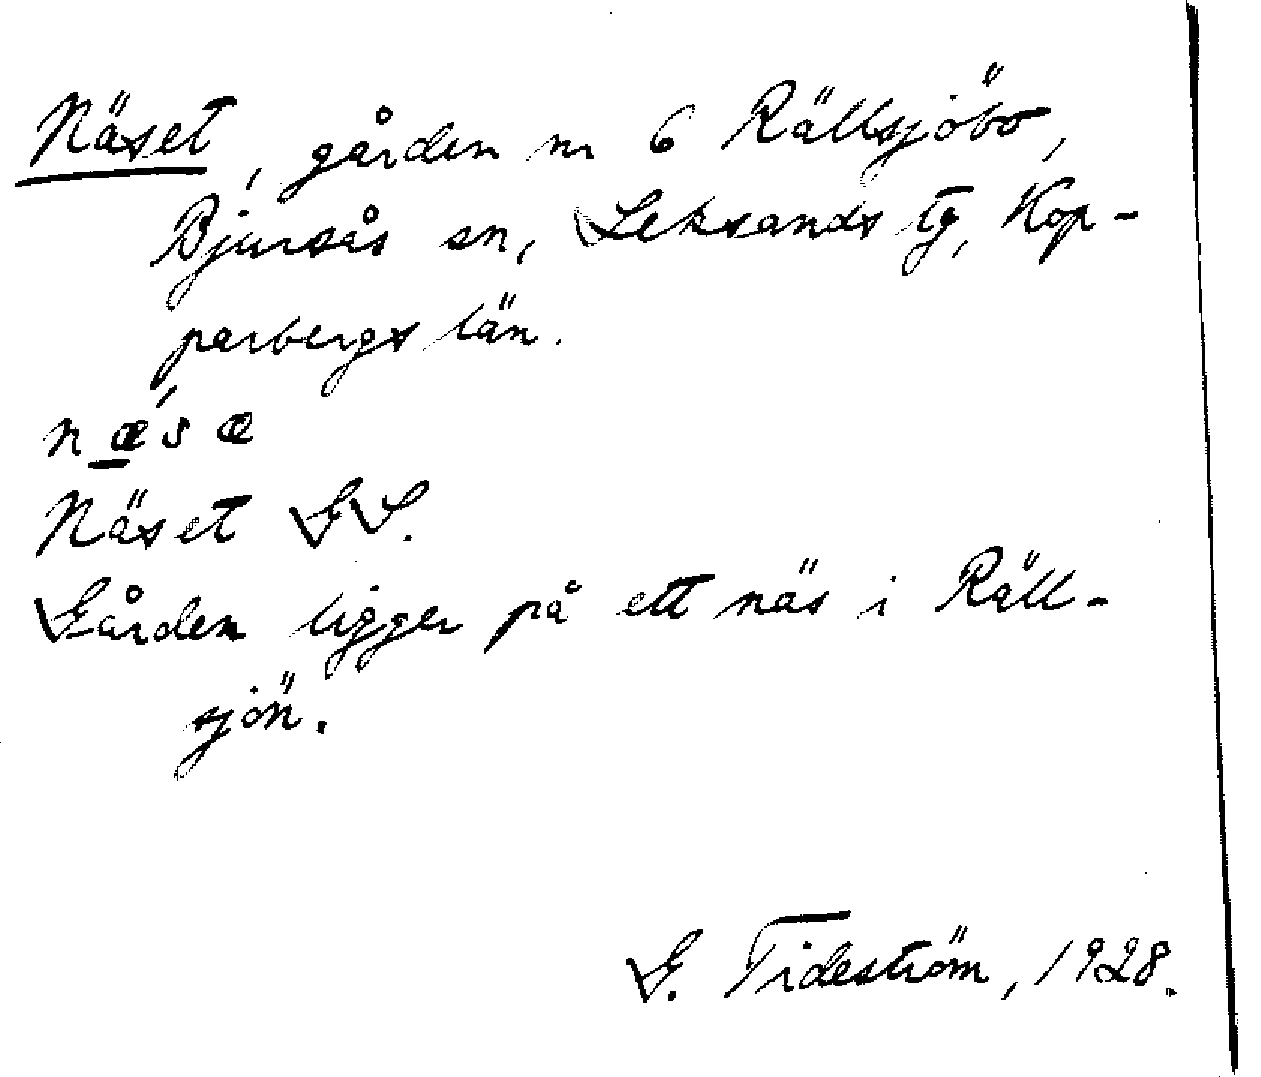 Näset, gården nr 6 Rällsjöbo,
Bjursås sn, Leksands tg, Kop-
parbergs län.
næ´sæ
Näset GS.
Gården ligger på ett näs i Räll-
sjön.
G. Tideström, 1928.